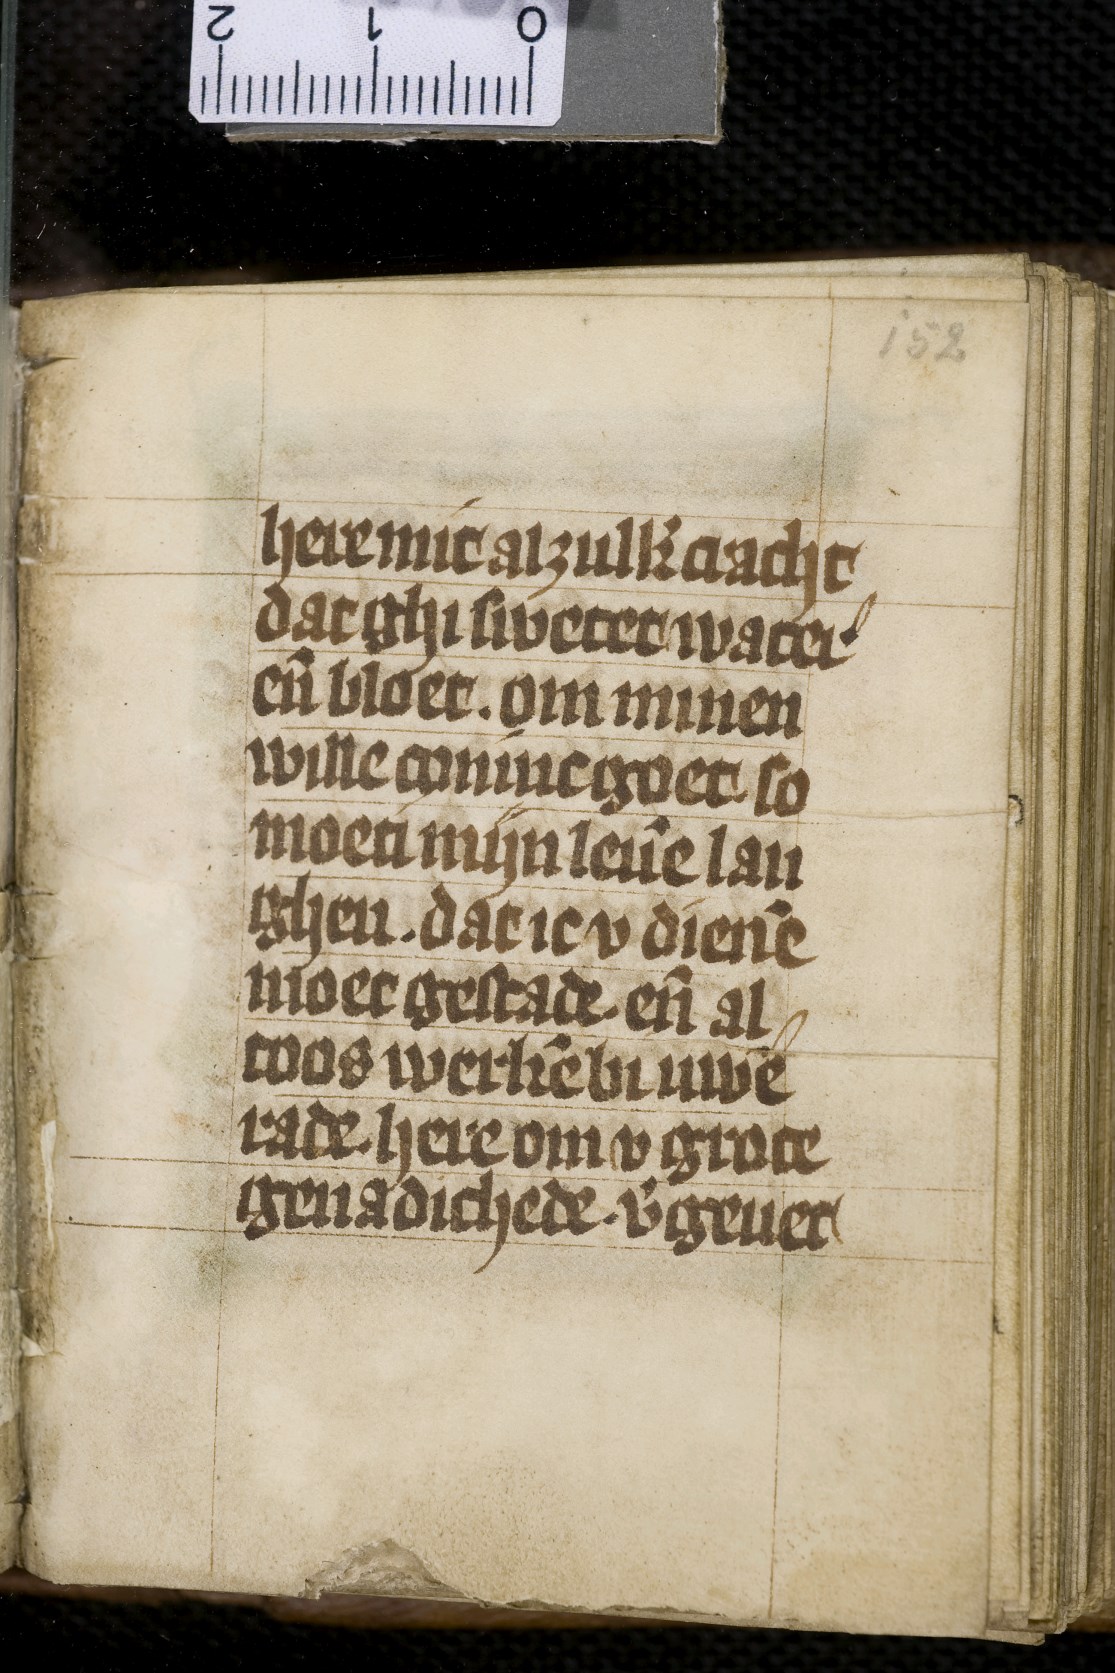 2 1 0
152
here mit alzulk̄ cracht
dat ghi swetet water
en̄ bloet. om minen
wille coninc goet. so
moeti mijn leuē lan
ghen. dat ic v dienē
moet gestade. en̄ al
toos werkē bi uwē
rade. here om v grote
genadichede. v̄geuet